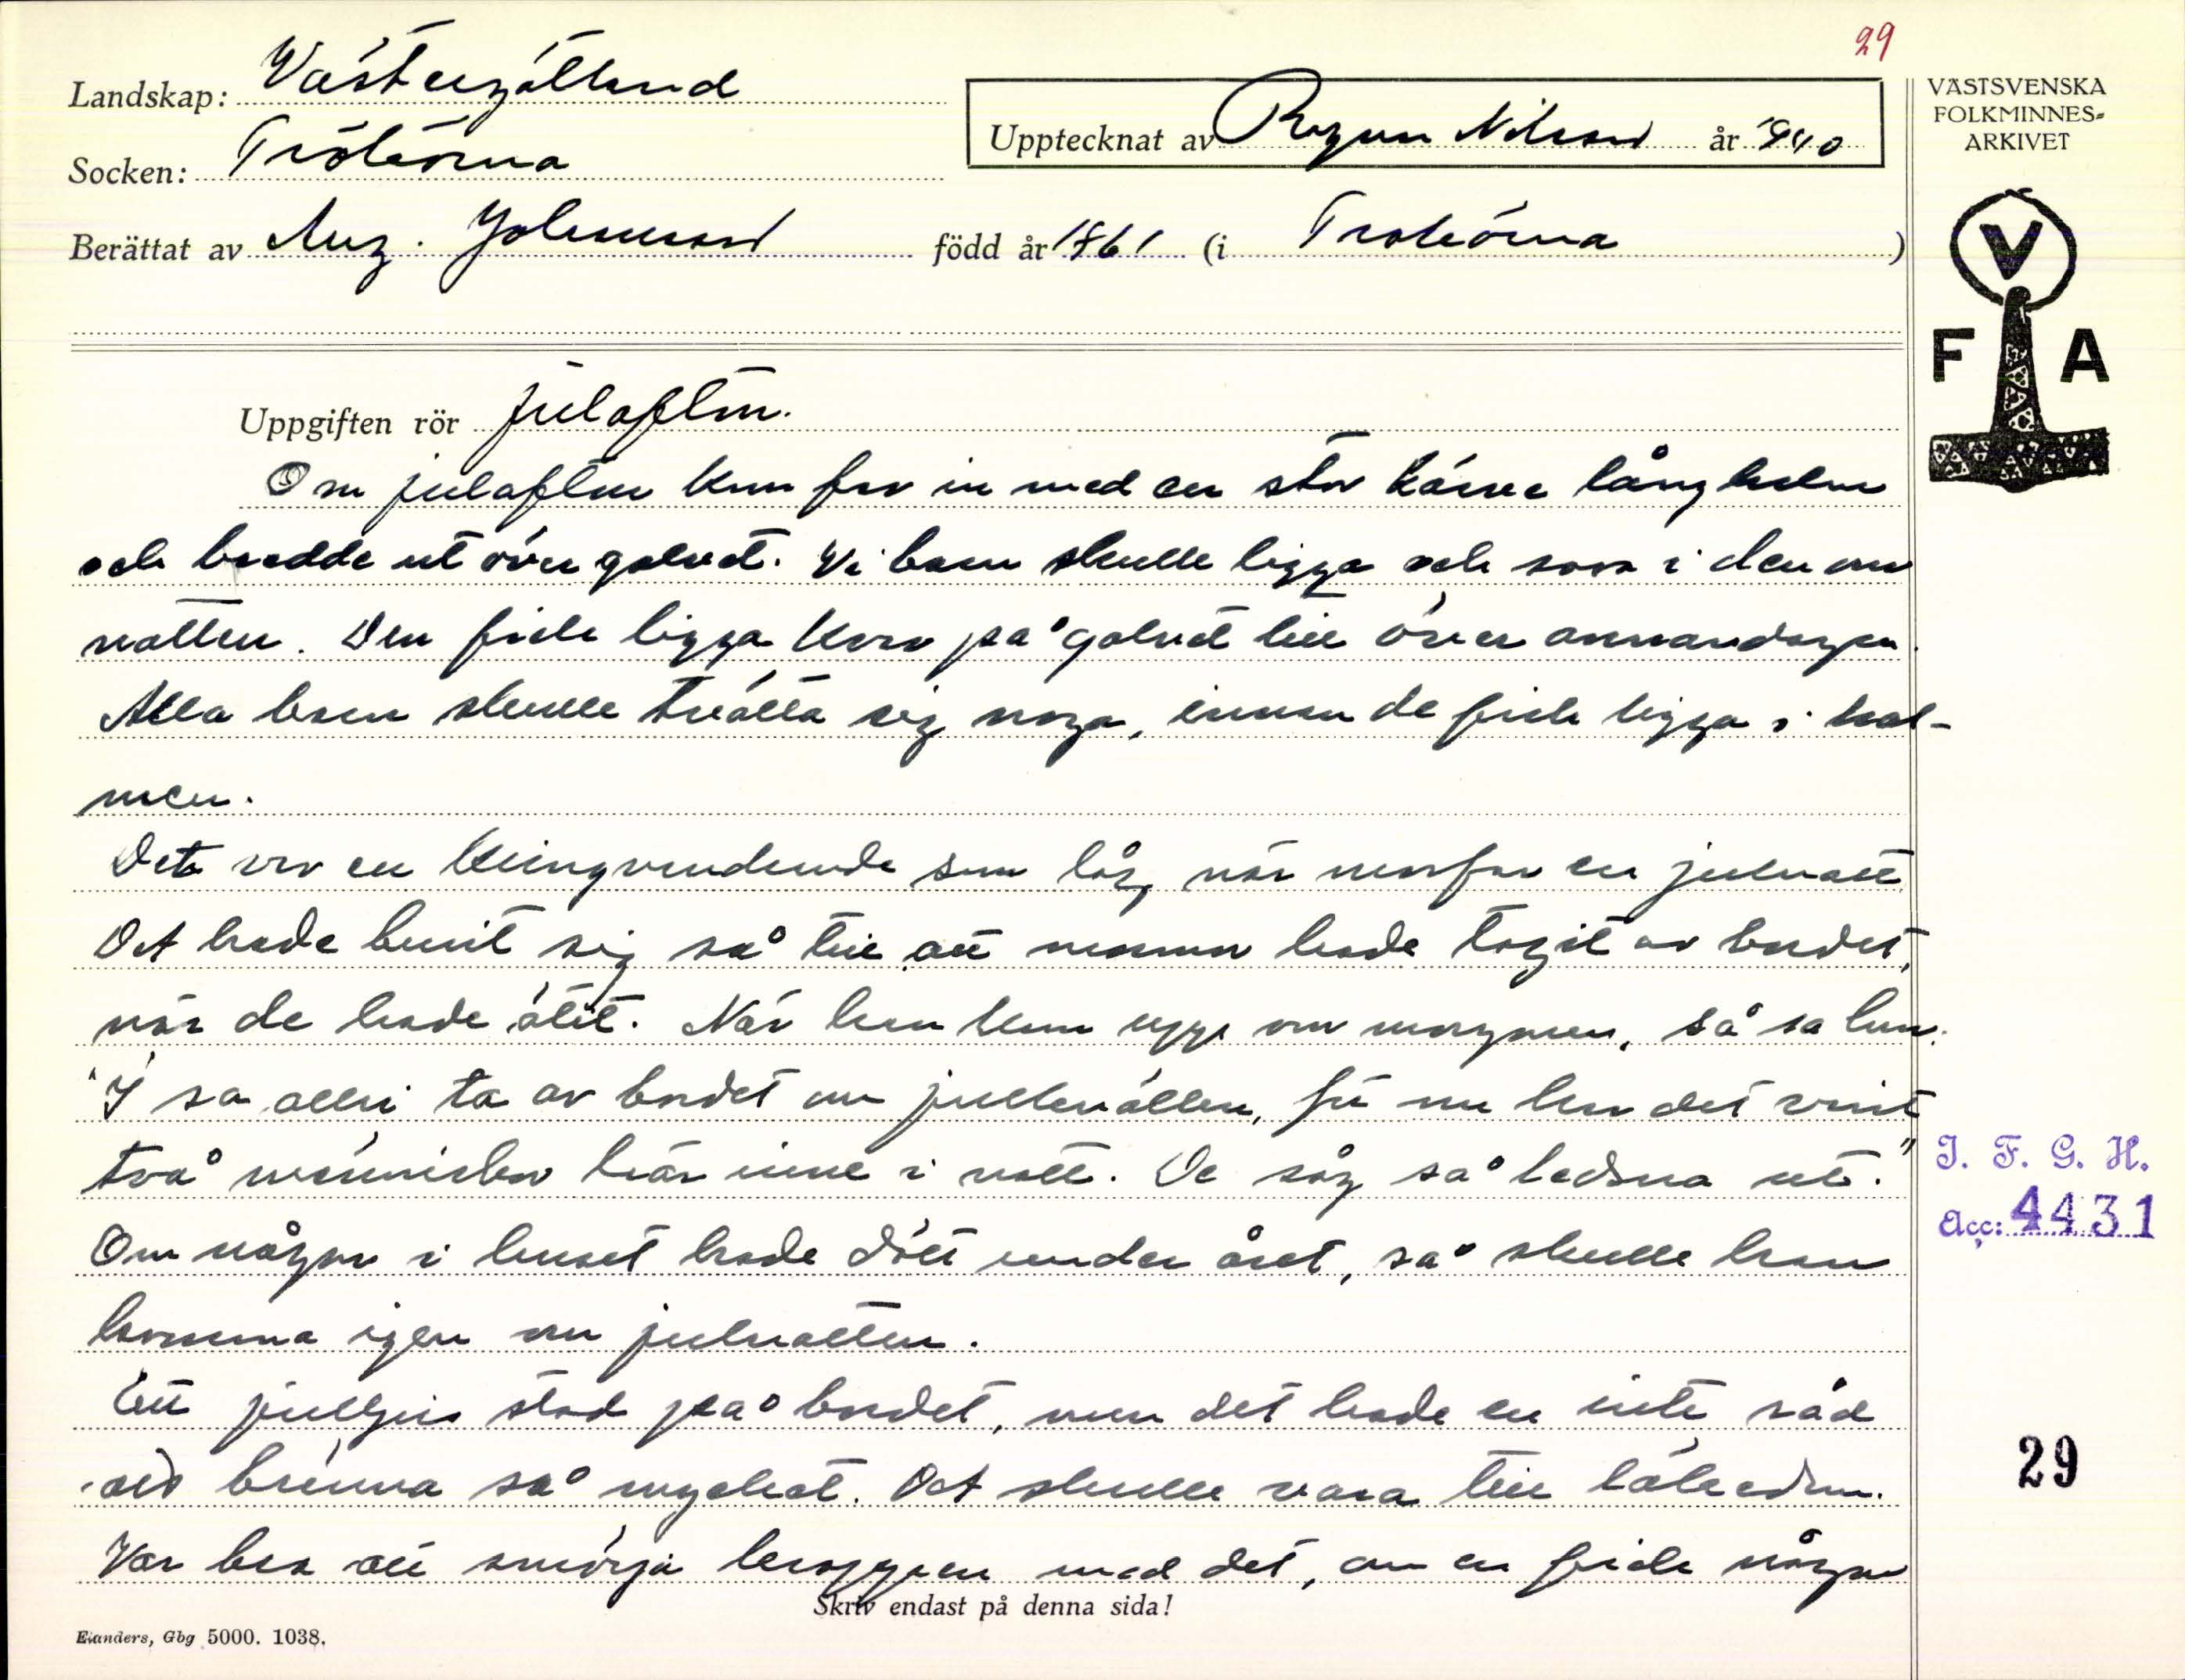 29
Landskap: Västergötland
Socken: Trökörna
Upptecknat av Ragnar Nilsson år 1940
Berättat av Aug. Johansson född år 1861 (i Trökörna)
VÄSTSVENSKA
FOLKMINNES-
ARKIVET
V
F A
Uppgiften rör julafton.
Om julafton kom far in med en stor kärve långhalm
och bredde ut över golvet. Vi barn skulle ligga och sova i den om
natten. Den fick ligga kvar på golvet till över annandagen.
Alla barn skulle tvätta sig noga, innan de fick ligga i hal-
men.
Det var en kringvandrande som låg när morfar en julnatt
Det hade burit sig så till att mormor hade tagit av bordet,
när de hade ätit. När han kom upp om morgonen, så sa han.
"I sa alldri ta av bordet om jullenätten, för nu har det varit
två människor här inne i natt. De såg så ledsna ut."
Om någon i huset hade dött under året, så skulle han
komma igen om julnatten.
Ett julljus stod på bordet, men det hade en inte råd
att bränna så mycket. Det skulle vara till läkedom.
Var bra att smörja kroppen med det, om en fick någon
Skriv endast på denna sida!
Elanders, Gbg 5000. 1038.
I. F. G. H.
Acc: 4431
29